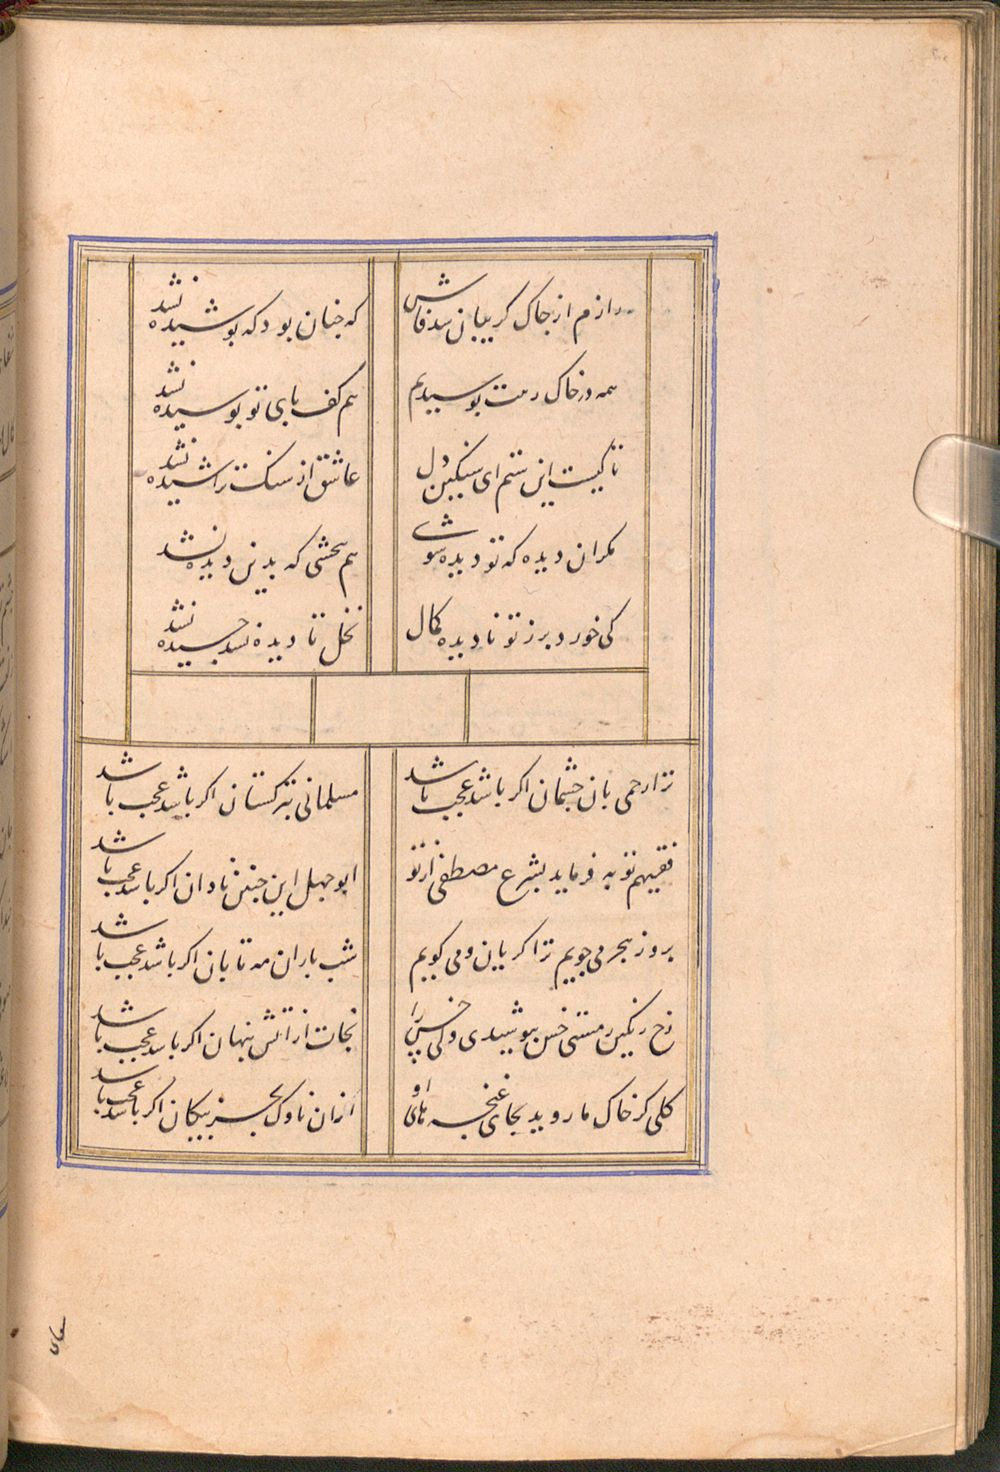 رازم از جاک کریبان شد فاش
که جنان بود که پوشیده نشد
همه در خاک رهت بوسیدیم
هم کف بای تو بوسیده نشد
تا کیست این ستم ای سنکین دل
عاشق از سنک تراشیده نشد
مکر ان دیده که تو دیده شوی
هم بخشی که بدین دیده نشد
کی خورد بر ز تو نادیده کمال
نخل تا دیده نشد جسیده نشد
ترا رحمی بان جشمان اکر باشد عجب باشد
مسلمانی بترکستان اکر باشد عجب باشد
فقیهم توبه فرماید بشرع مصطفی از تو
ابو جهل این جنین نادان اکر باشد عجب باشد
بروز هجر می جویم ترا کریان و می کویم
شب باران مه تابان اکر باشد عجب باشد
رخ رنکین مستی خس بپوشیدی ولی خس را
نجات از اتش بنهان اکر باشد عجب باشد
کلی کز خاک ما روید بجای غنجه های او
ازان ناوک بجز بیکان اکر باشد عجب باشد